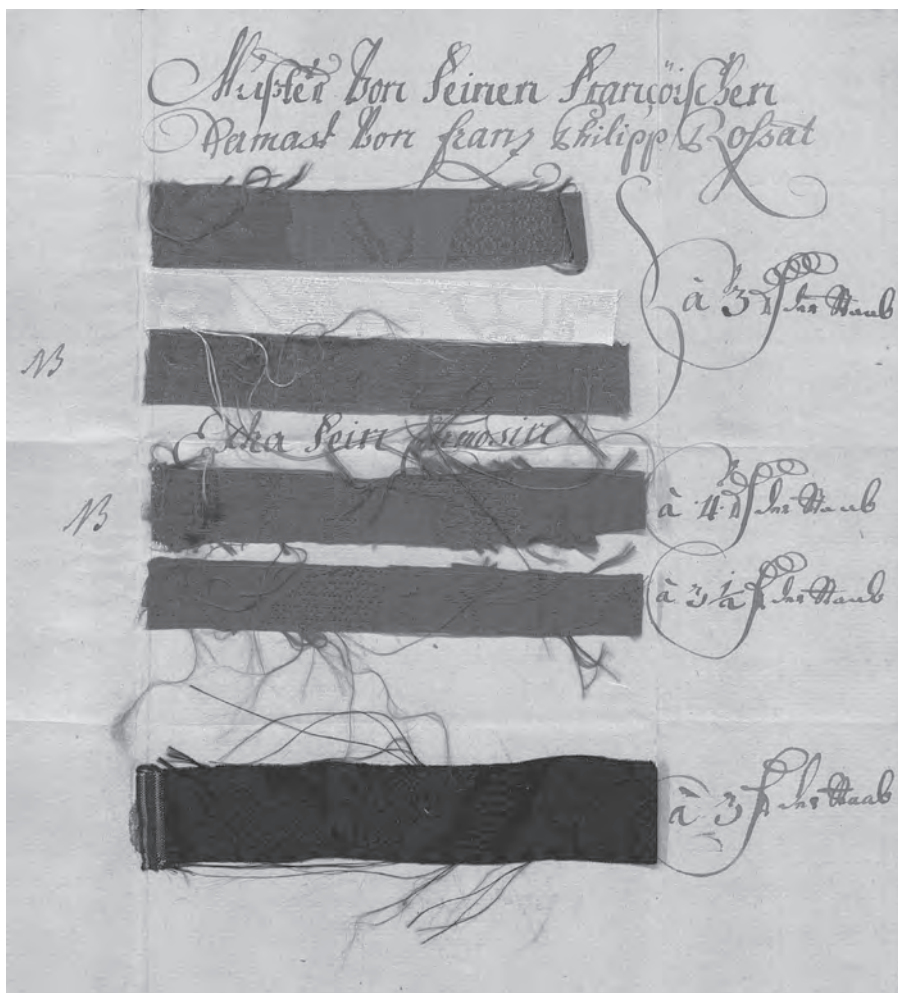 Muster Von Feinen Françöischen
Damast Von franz Philipp Rossat
à 3 der Staab
NB
Extra Fein Carmosin
à 4 der Staab
NB
à 3 1/2 der Staab
à 3 der Staab